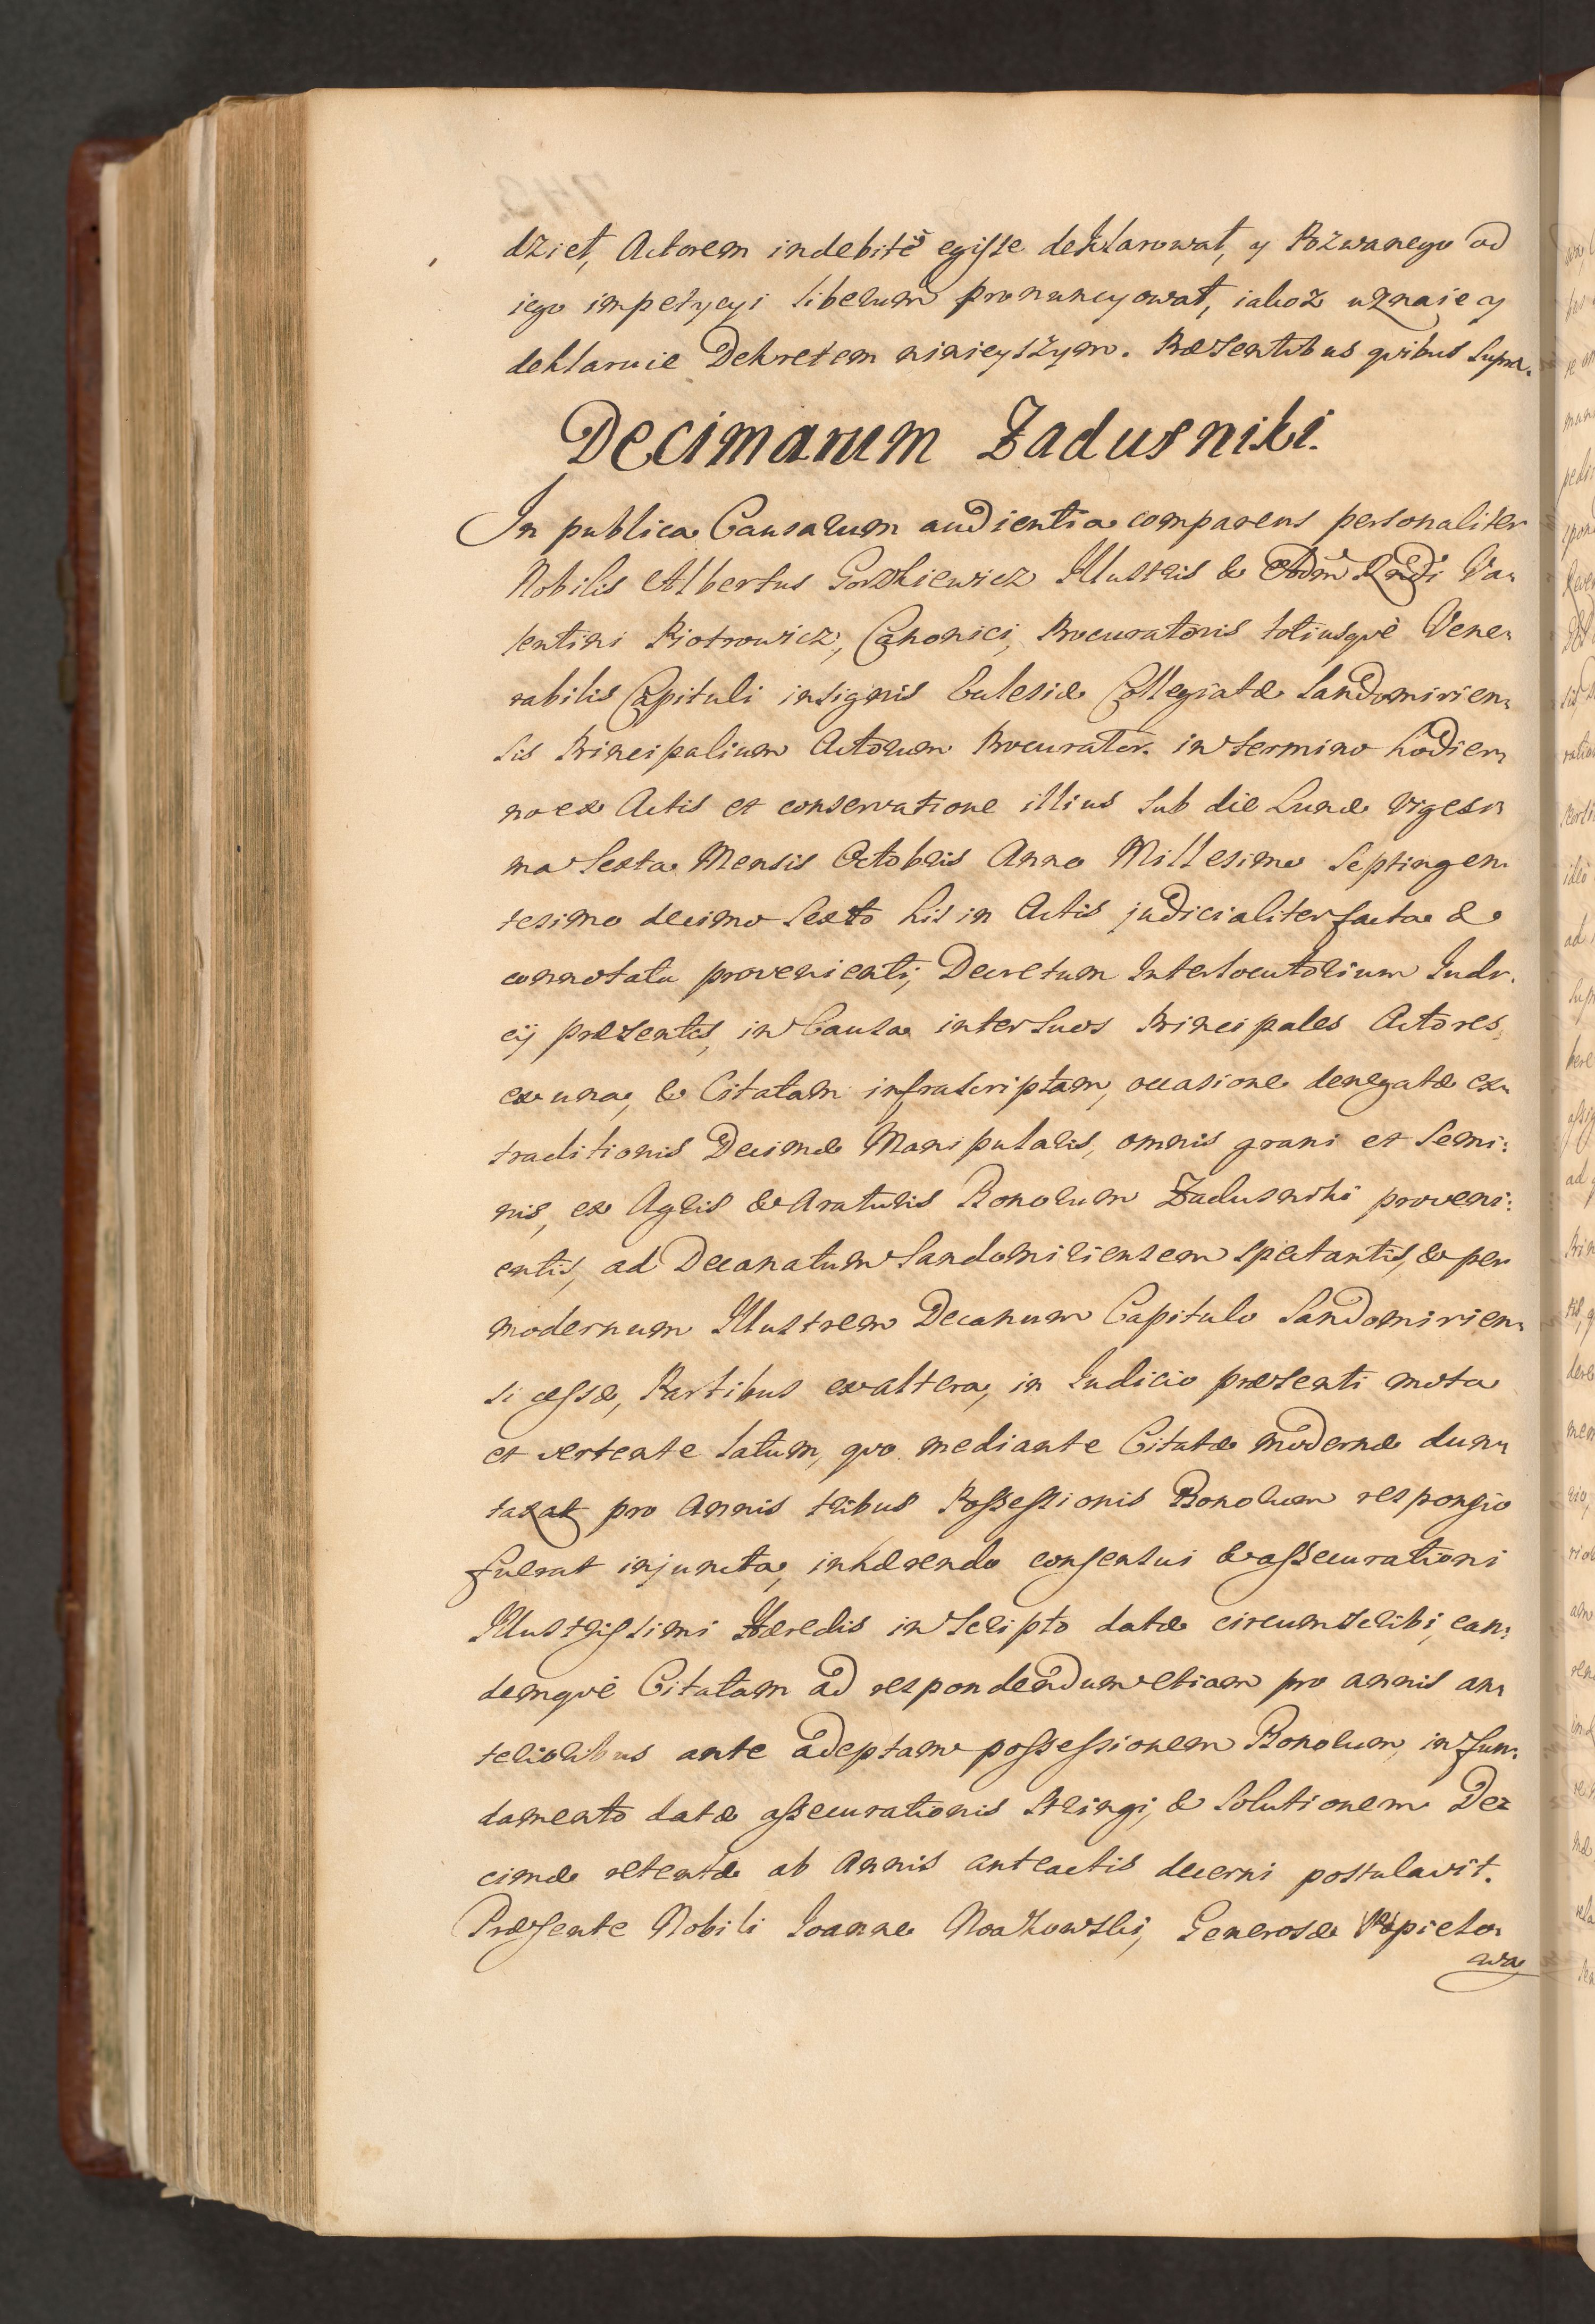 dziet, Actorem indebitè egisse deklarował, y Pozwanego od
iego impetycyi liberum pronuncyował, iakoż uznaie y
deklaruie Dekretem ninieyszym. Præsentibus quibus supra.
Decimarum Zadusniki.
In publica Causarum audientia comparens personaliter
Nobilis Albertus Gorzkiewicz Illustris & Adm Rndi Va-
lentini Piotrowicz, Canonici, Procuratoris totiusquè Vene-
rabilis Capituli insignis Ecclesiæ Collegiatæ Sandomirien-
sis Principalium Actorum Procurator. in termino hodier-
no ex Actis et conservatione illius sub die Lunæ vigesi-
ma Sexta Mensis Octobris Anno Millesimo Septingen-
tesimo decimo Sexto his in Actis judicialiter facta &
connotata provenienti, Decretum Interlocutorium Judi-
cij præsentis, in Causa inter suos Principales Actores
ex una, & Citatam infrascriptam, occasione denegatæ ex-
traditionis Decimæ Manipularis, omnis grani et semi-
nis, ex Agris & Araturis Bonorum Zadusniki proveni-
entis, ad Decanatum Sandomiriensem spectantis, & per
modernum Illustrem Decanum Capitulo Sandomirien-
si cessæ, Partibus ex altera, in Judicio præsenti mota
et vertente latum, quo mediante Citatæ modernæ dun-
taxat pro Annis tribus Possessionis Bonorum responsio
fuerat injuncta, inhærendo consensui & assecurationi
Illustrissimi Hæredis in Scripto datæ circumscribi, ean-
demquè Citatam ad respondendum etiam pro annis an-
terioribus ante adeptam possessionem Bonorum, in fun-
damento datæ assecurationis stringi, & solutionem De-
cimæ retentæ ab Annis anteactis decerni postulavit.
Præsente Nobili Joanne Noakowski, Generosæ Popielo-
wa